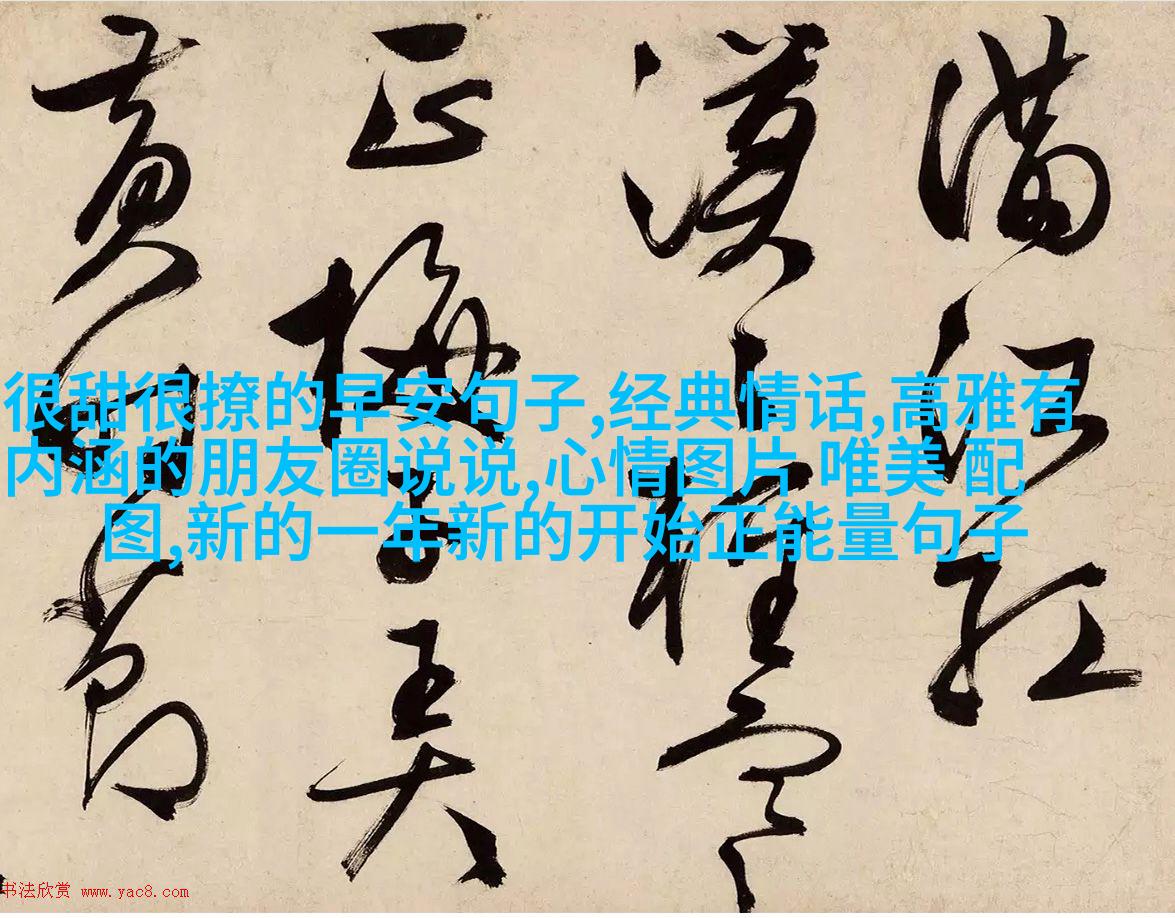 滿江紅
漠〻輕
正梅子弄
黃時節
很甜很撩的早安句子,经典情话,高雅有
内涵的朋友圈说说,心情图片 唯美 配
图,新的一年新的开始正能量句子
书法欣赏 www.yac8.com